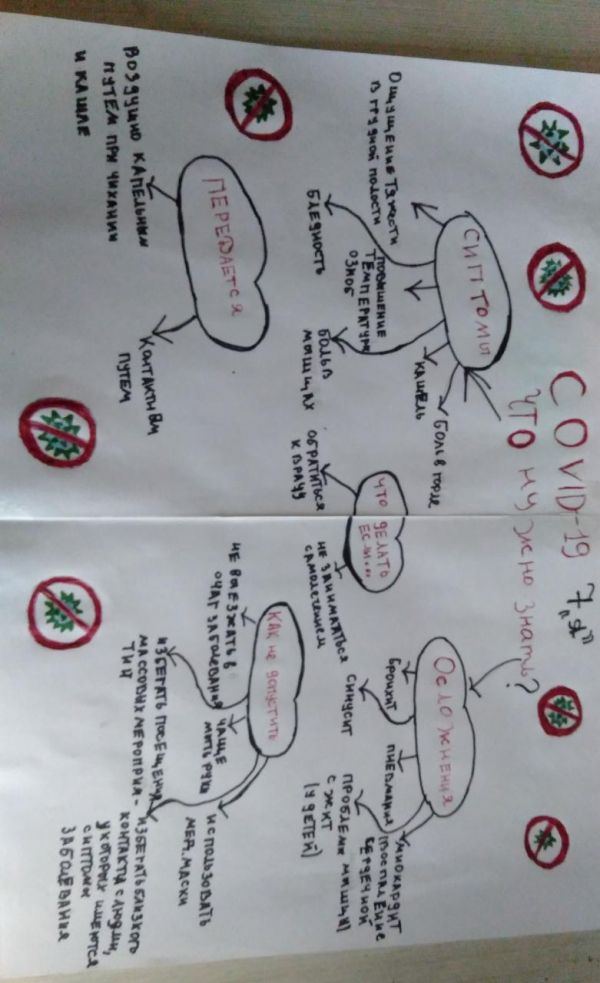 COVID-19 7 "А"
ЧТО НУЖНО ЗНАТЬ?
СИПТОМЫ
ОЩУЩЕНИЕ ТЯЖЕСТИ
В ГРУДНОЙ ПОЛОСТИ
БЛЕДНОСТЬ
ПОВЫШЕНИЕ
ТЕМПЕРАТУРЫ
ОЗНОБ
БОЛЬ В
МЫШЦАХ
КАШЕЛЬ
БОЛЬ В ГОРЛЕ
ОСЛОЖНЕНИЯ
БРОНХИТ
СИНУСИТ
ПНЕВМАНИЯ
ПРОБЛЕМЫ
С ЖКТ
(У ДЕТЕЙ)
МИОКАРДИТ
(ВОСПАЛЕНИЕ
СЕРДЕЧНОЙ
МЫШЦЫ)
ЧТО ДЕЛАТЬ
ЕСЛИ...
ОБРАТИТЬСЯ
К ВРАЧУ
НЕ ЗАНИМАТЬСЯ
САМОЛЕЧЕНИЕМ
ПЕРЕДАЕТСЯ
ВОЗДУШНО КАПЕЛЬНЫМ
ПУТЕМ ПРИ ЧИХАНИИ
И КАШЛЕ
КОНТАКТНЫМ
ПУТЕМ
КАК НЕ ДОПУСТИТЬ
НЕ ВЫЕЗЖАТЬ В
ОЧАГ ЗАБОЛЕВАНИЯ
ИЗБЕГАТЬ ПОСЕЩЕНИЯ
МАССОВЫХ МЕРОПРИЯ-
ТИЙ
ЧАЩЕ
МЫТЬ РУКИ
ИСПОЛЬЗОВАТЬ
МЕД.МАСКИ
ИЗБЕГАТЬ БЛИЗКОГО
КОНТАКТА С ЛЮДЬМИ,
У КОТОРЫХ ИМЕЮТСЯ
СИПТОМЫ
ЗАБОЛЕВАНИЯ